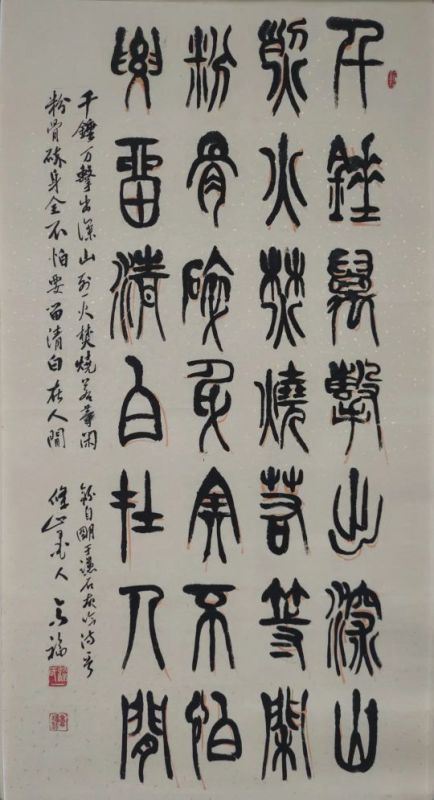 千錘萬擊出深山
烈火焚燒若等閑
粉骨碎身全不怕
要留清白在人間
千錘万擊出深山烈火焚燒若等闲
粉骨碎身全不怕要留清白在人間
錄自明于谦石灰吟诗句
山 人 福